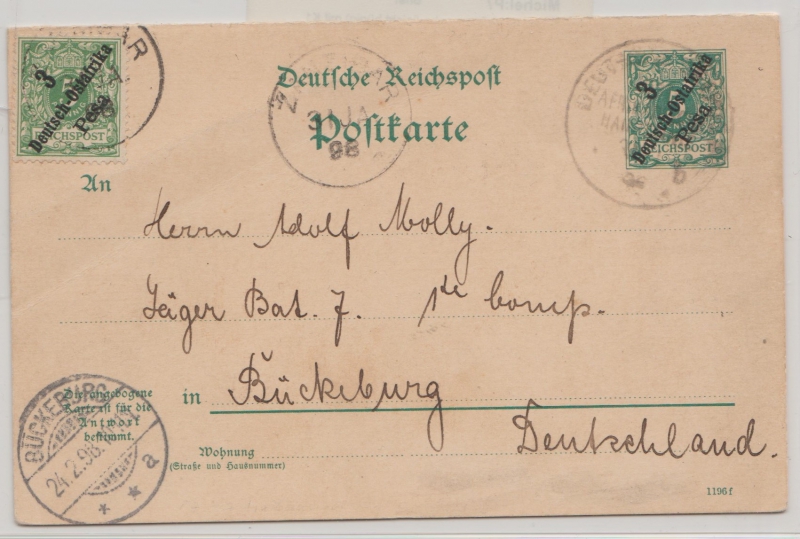 3
Deutsch-Ostafrika
Pesa
REICHSPOST
Deutsche Reichspost
Postkarte
ZANZIBAR
JA
98
3
Deutsch-Ostafrika
Pesa
REICHSPOST
An
Herrn Adolf Molly.
Jäger Bat. 7. 1te Comp.
in Bückeburg
Deutschland.
Die angebogene
Karte ist für die
Antwort
bestimmt.
BÜCKEBURG
24.2.98.
* * a
Wohnung
(Straße und Hausnummer)
1196f